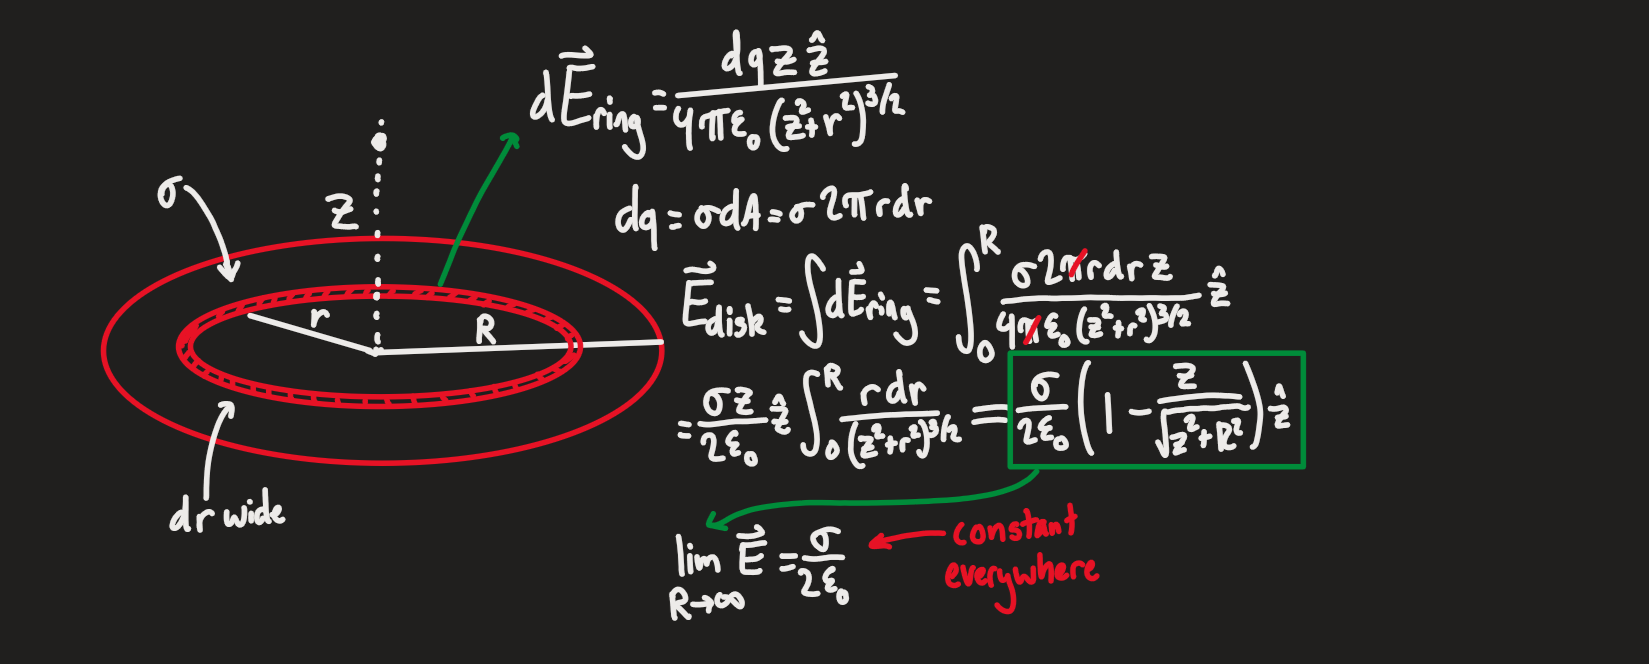 dE⃗ring = dq z ẑ / 4πε₀(z²+r²)^3/2
σ
z
dq = σdA = σ2πrdr
r
R
E⃗disk = ∫dE⃗ring = ∫₀ᴿ σ2πrdrz / 4πε₀(z²+r²)^3/2 ẑ
= σz/2ε₀ ẑ ∫₀ᴿ rdr / (z²+r²)^3/2 = σ/2ε₀ (1 - z/√(z²+R²)) ẑ
dr wide
lim R→∞ E⃗ = σ/2ε₀
constant
everywhere